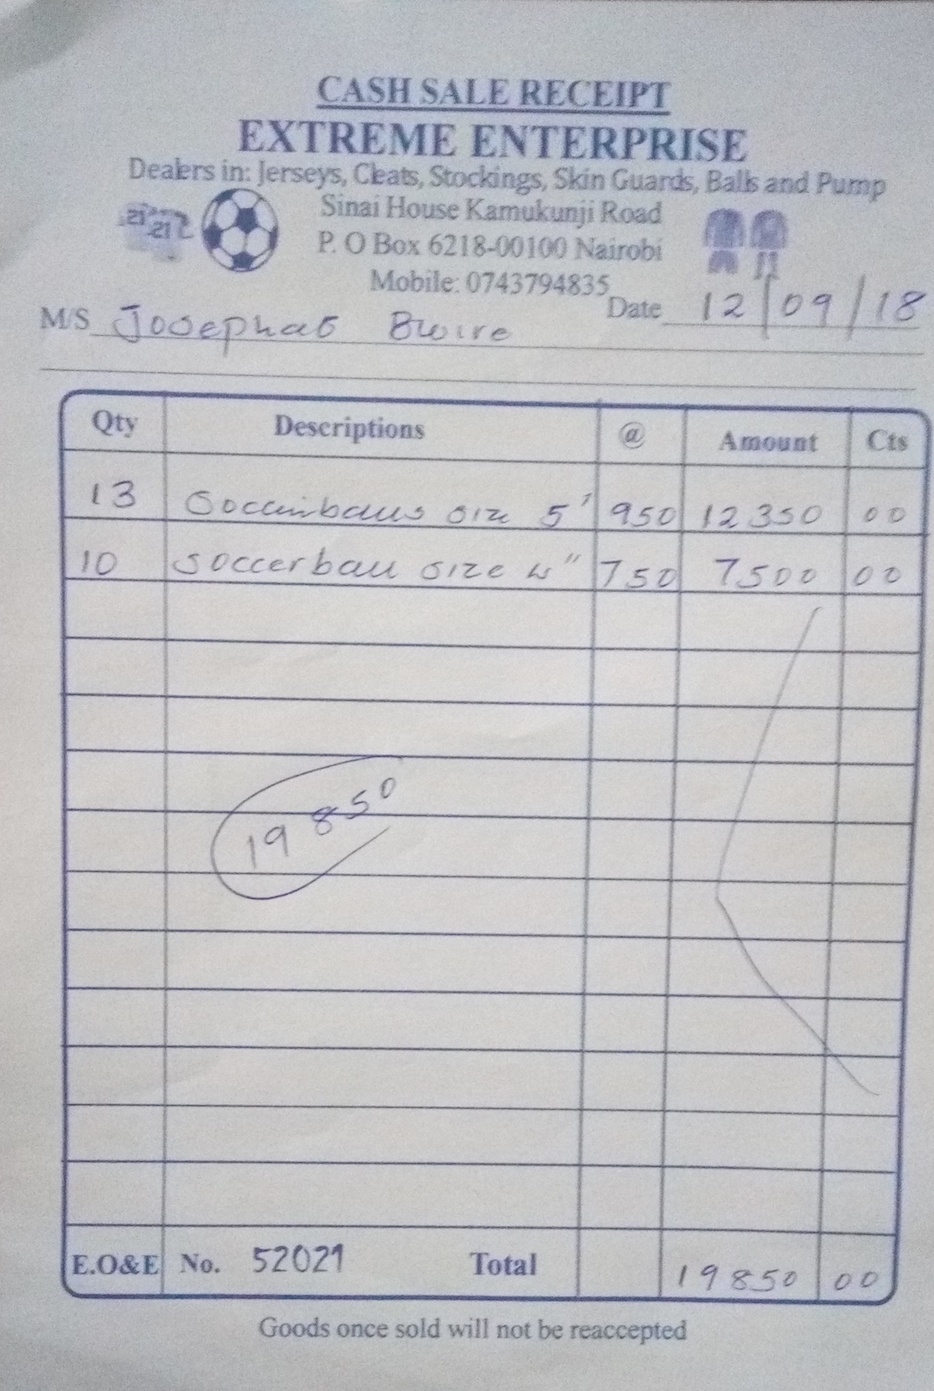 CASH SALE RECEIPT
EXTREME ENTERPRISE
Dealers in: Jerseys, Cleats, Stockings, Skin Guards, Balls and Pump
Sinai House Kamukunji Road
P. O Box 6218-00100 Nairobi
Mobile: 0743794835
Date 12/09/18
M/S Josephat Bwire
Qty Descriptions @ Amount Cts
13 Soccerballs size 5" 950 12350 00
10 soccerball size 4" 750 7500 00
19850
E.O&E No. 52021 Total 19850 00
Goods once sold will not be reaccepted